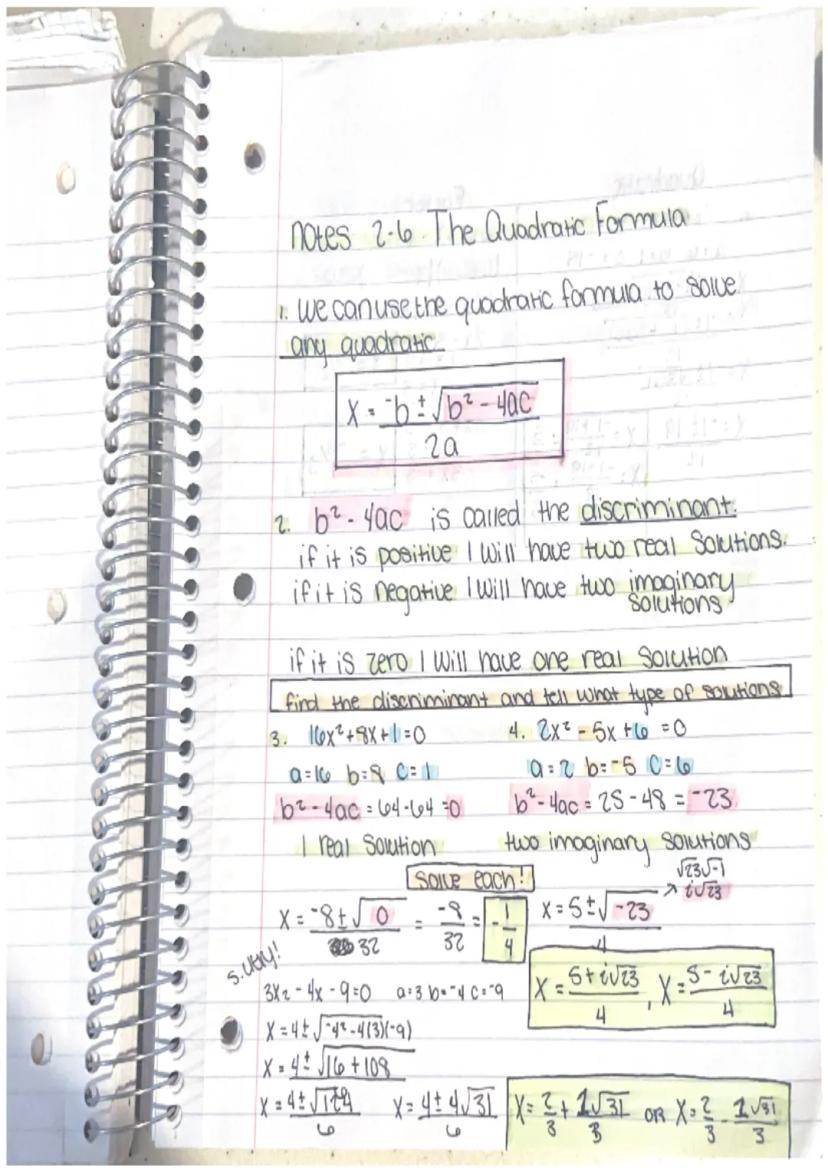 notes 2-6. The Quadratic Formula
1. we can use the quadratic formula to solve
any quadratic.
x = -b ± √b² - 4ac
2a
2. b² - 4ac is called the discriminant.
if it is positive I will have two real solutions.
if it is negative I will have two imaginary
solutions.
if it is zero I will have one real solution
find the discriminant and tell what type of solutions
3. 16x²+8x+1=0
4. 2x² - 5x +6 = 0
a=16 b=8 c=1
a=2 b=-5 c=6
b² - 4ac = 64-64 =0
b² - 4ac = 25 - 48 = -23
1 real solution
two imaginary solutions
solve each!
√23√-1
i√23
x = -8±√0 = -8 = -1
32 32 4
x = 5±√-23
4
x = 5+i√23 , x = 5 - i√23
4 4
5. u try!
3x2 - 4x - 9=0 a=3 b=-4 c=-9
x = 4± √-4²-4(3)(-9)
x = 4± √16 + 108
x = 4±√124
6
x = 4±4√31
6
x = 2 + 1√31 OR x = 2 - 1√31
3 3 3 3